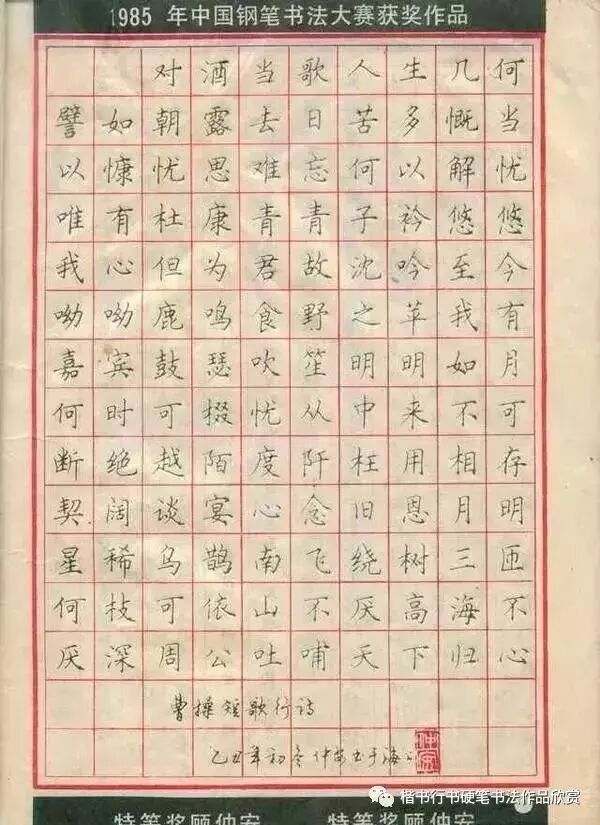 1985 年中国钢笔书法大赛获奖作品
对酒当歌人生几何
譬如朝露去日苦多慨当
以慷忧思难忘何以解忧
唯有杜康青青子衿悠悠
我心但为君故沈吟至今
呦呦鹿鸣食野之苹我有
嘉宾鼓瑟吹笙明明如月
何时可掇忧从中来不可
断绝越陌度阡枉用相存
契阔谈宴心念旧恩月明
星稀乌鹊南飞绕树三匝
何枝可依山不厌高海不
厌深周公吐哺天下归心
曹操短歌行诗
乙丑年初冬仲安书于海上
仲安
楷书行书硬笔书法作品欣赏
特等奖顾仲安